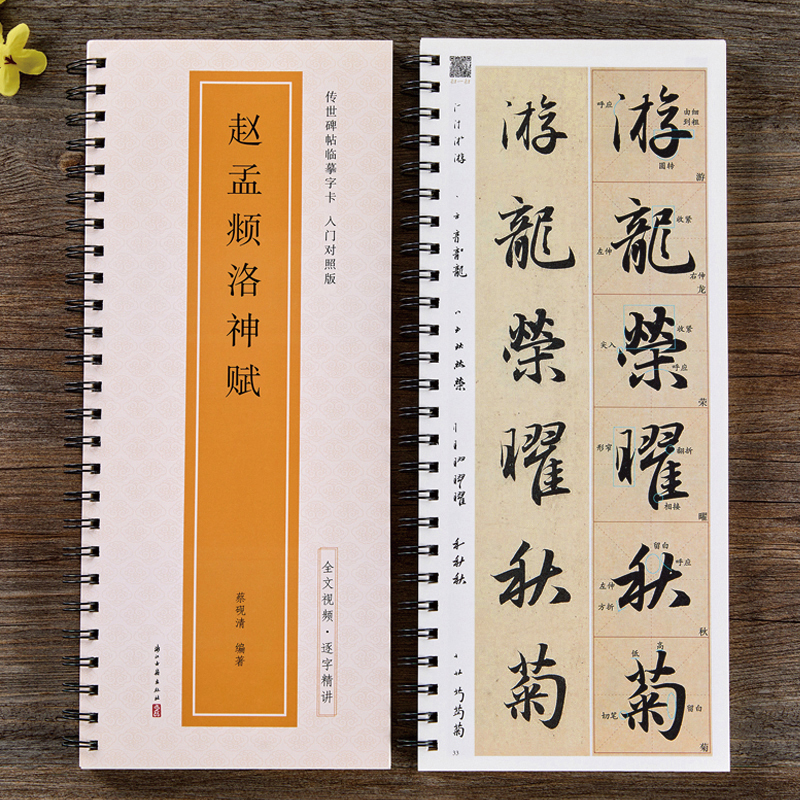 传世碑帖临摹字卡 入门对照版
赵孟頫洛神赋
蔡砚清 编著
浙江古籍出版社
全文视频·逐字精讲
游龍榮曜秋菊
游
呼应
由细到粗
圆转
游
龍
收紧
左伸
右伸
龙
榮
收紧
尖入
呼应
荣
曜
形窄
翻折
相接
曜
秋
留白
呼应
左伸
方折
秋
菊
高
低
切笔
留白
菊
33